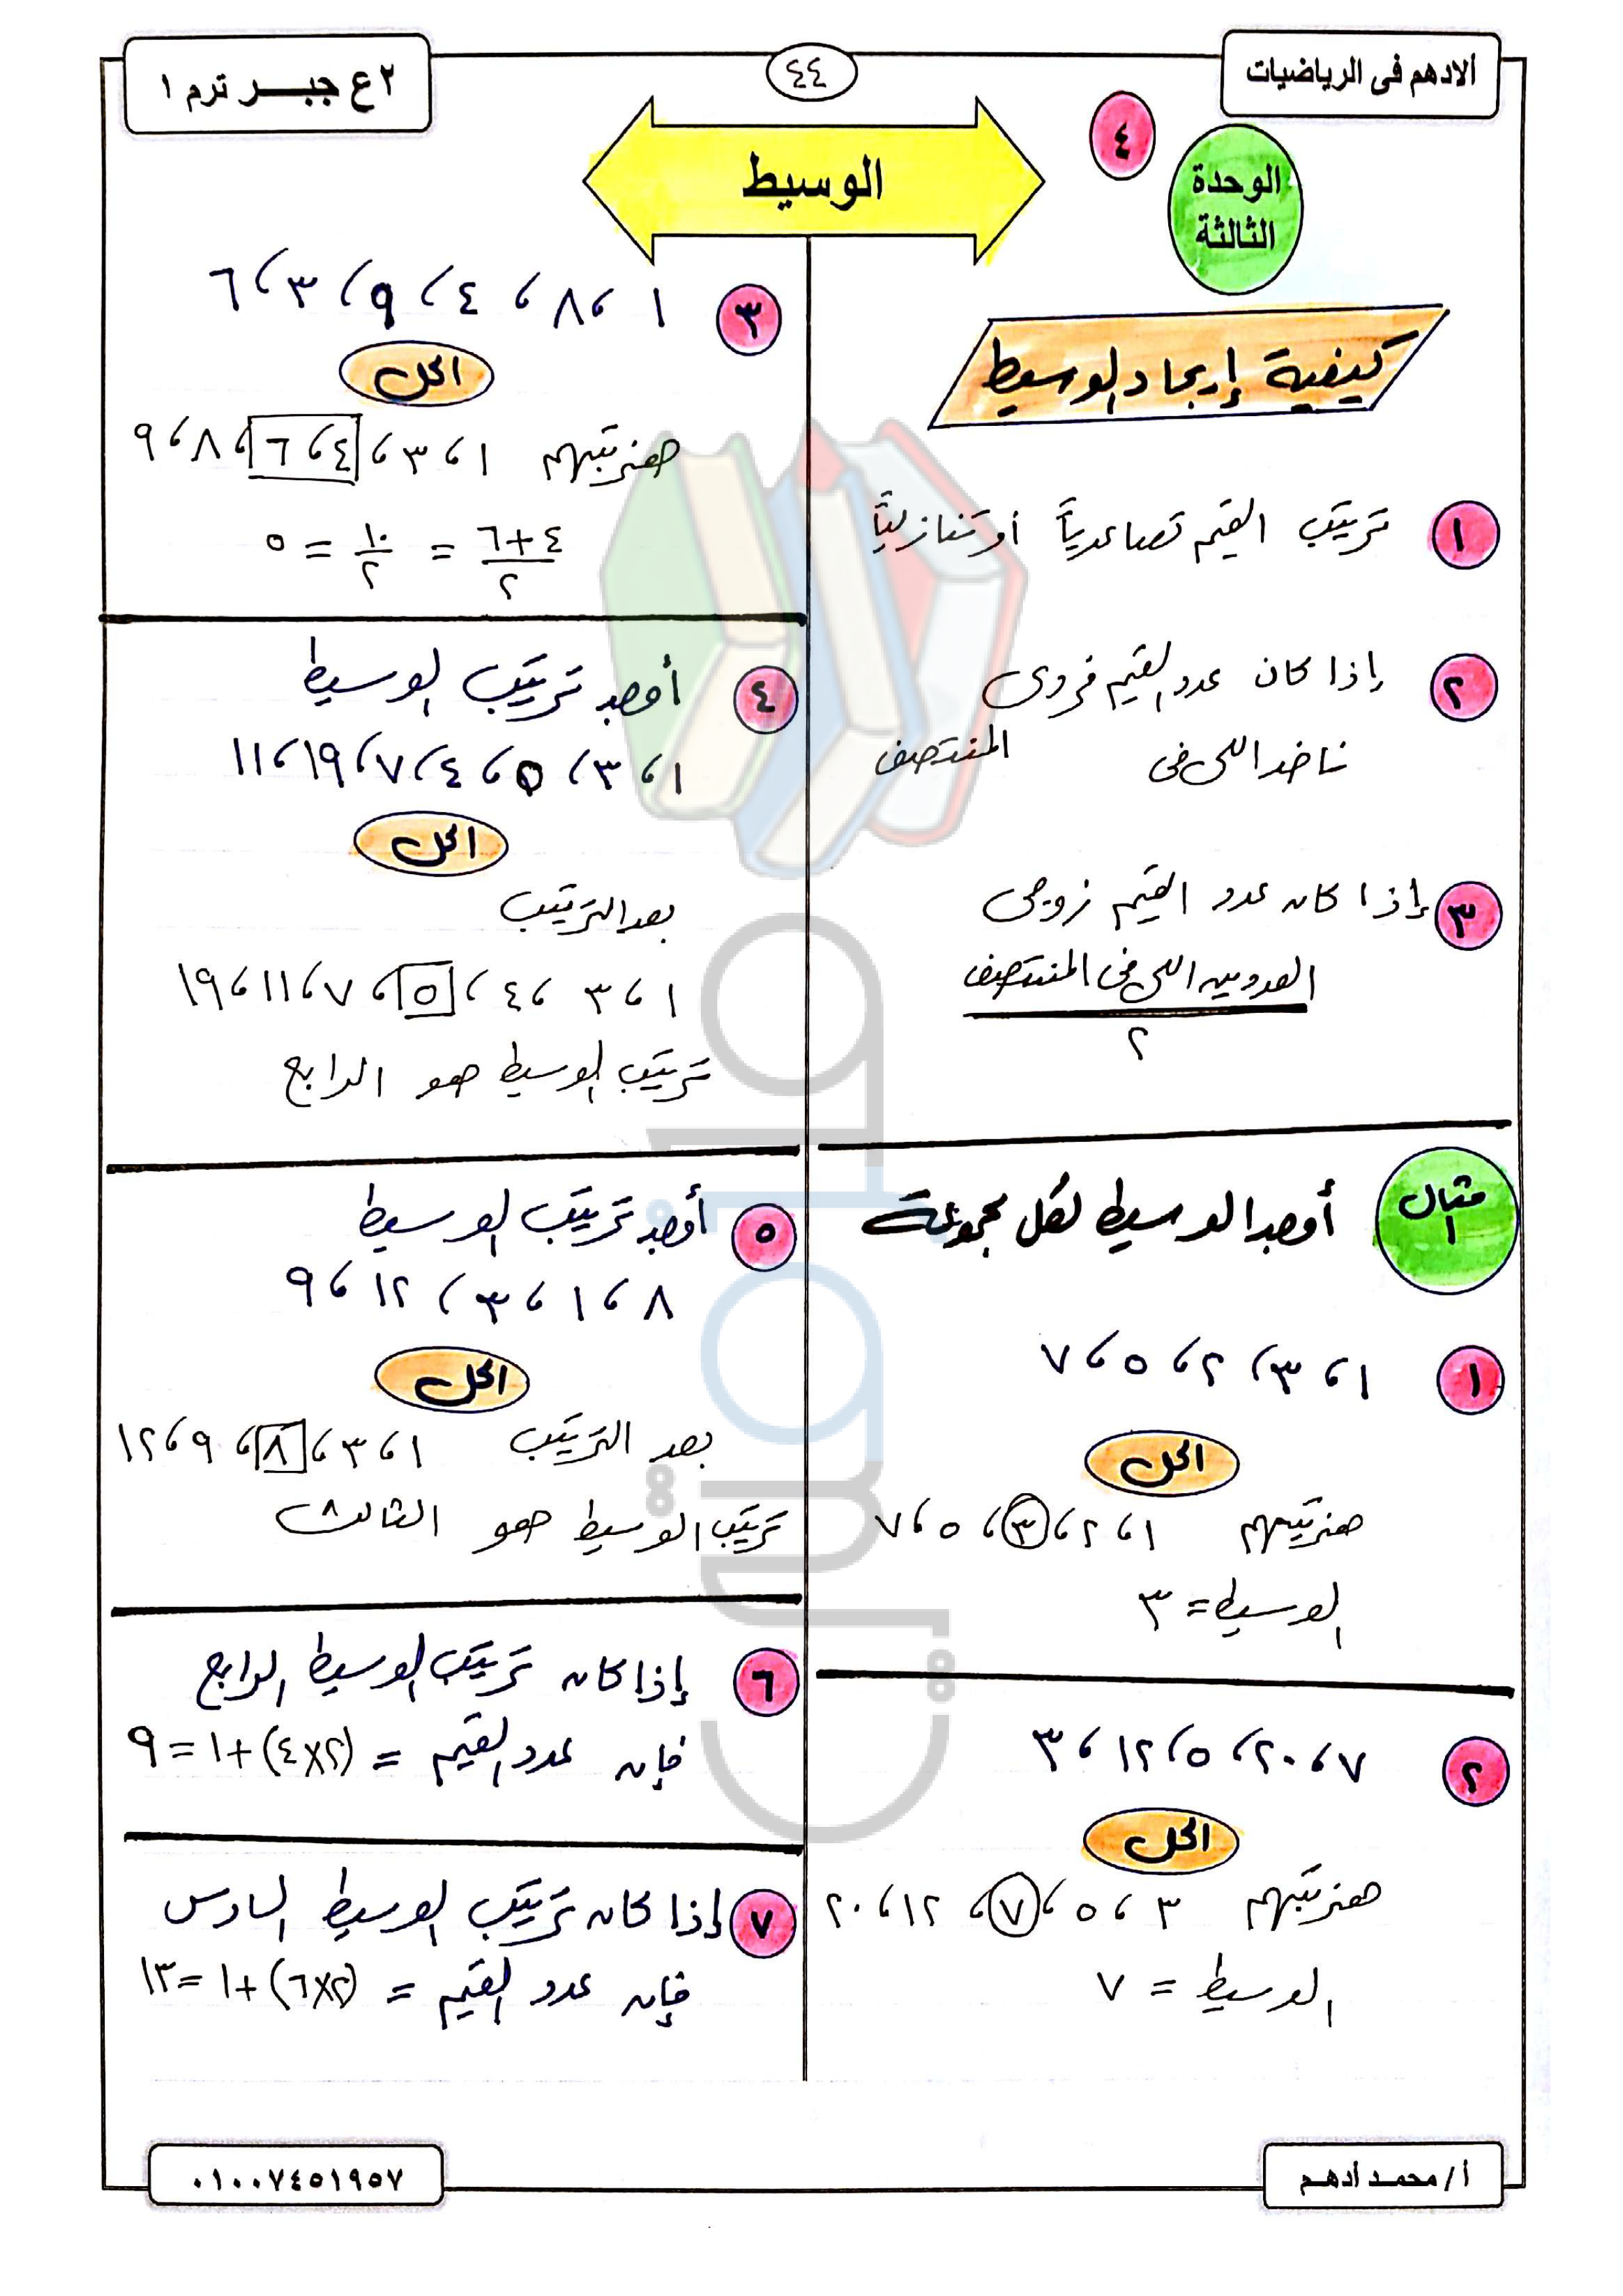 ألادهم فى الرياضيات
٤٤
٢ ع جبـــر ترم ١
٤
الوحدة
الثالثة
الوسيط
كيفية إيجاد الوسيط
١ ترتيب القيم تصاعدياً أو تنازلياً
٢ إذا كان عدد القيم فردى
ناخد اللى فى المنتصف
٣ إذا كان عدد القيم زوجى
العددين اللى فى المنتصف
٢
مثال ١ أوجد الوسيط لكل مجموعة
١ ١ ، ٣ ، ٢ ، ٥ ، ٧
الحل
هنرتبهم ١ ، ٢ ، ٣ ، ٥ ، ٧
الوسيط = ٣
٢ ٧ ، ٢٠ ، ٥ ، ١٢ ، ٣
الحل
هنرتبهم ٣ ، ٥ ، ٧ ، ١٢ ، ٢٠
الوسيط = ٧
٣ ١ ، ٨ ، ٤ ، ٩ ، ٣ ، ٦
الحل
هنرتبهم ١ ، ٣ ، ٤ ، ٦ ، ٨ ، ٩
٤+٦ / ٢ = ١٠ / ٢ = ٥
٤ أوجد ترتيب الوسيط
١ ، ٣ ، ٥ ، ٤ ، ٧ ، ١٩ ، ١١
الحل
بعد الترتيب
١ ، ٣ ، ٤ ، ٥ ، ٧ ، ١١ ، ١٩
ترتيب الوسيط هو الرابع
٥ أوجد ترتيب الوسيط
٨ ، ١ ، ٣ ، ١٢ ، ٩
الحل
بعد الترتيب ١ ، ٣ ، ٨ ، ٩ ، ١٢
ترتيب الوسيط هو الثالث
٦ إذا كان ترتيب الوسيط الرابع
فإن عدد القيم = (٢×٤) + ١ = ٩
٧ إذا كان ترتيب الوسيط السادس
فإن عدد القيم = (٢×٦) + ١ = ١٣
أ / محمد أدهم
٠١٠٠٧٤٥١٩٥٧